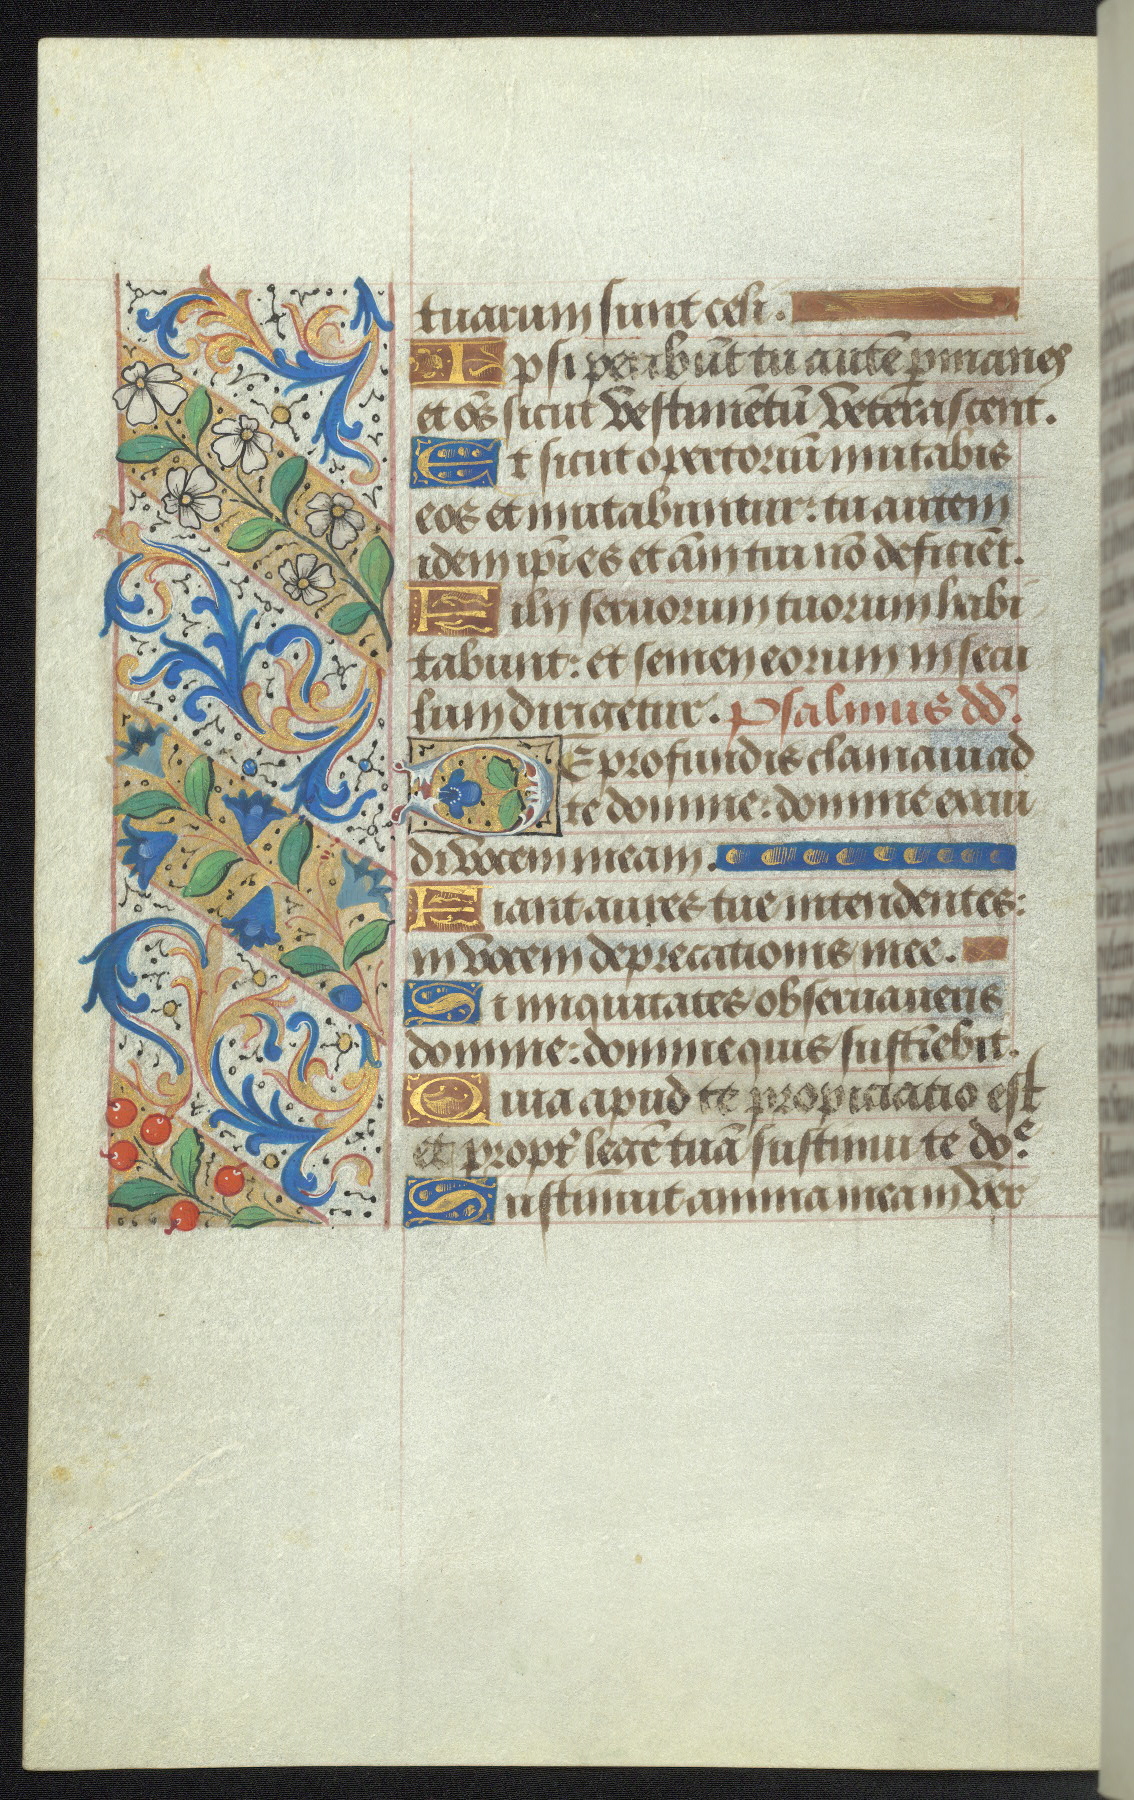 tuarum sunt celi.
Ipsi peribūt tu autē p̄manes
et oēs sicut vestimētū veterascent.
Et sicut opertoriū mutabis
eos et mutabuntur: tu autem
idem ip̄e es et āni tui nō deficiēt.
Filij seruorum tuorum habi
tabunt: et semen eorum in secu
lum dirigetur. Psalmus dd̄.
DE profundis clamaui ad
te domine: domine exau
di vocem meam.
Fiant aures tue intendentes:
in vocem deprecationis mee.
Si iniquitates obseruaueris
domine: domine quis sustiēbit.
Quia apud te propiciatio est
et propt̄ legē tuā sustinui te doē
Sustinuit anima mea in ver